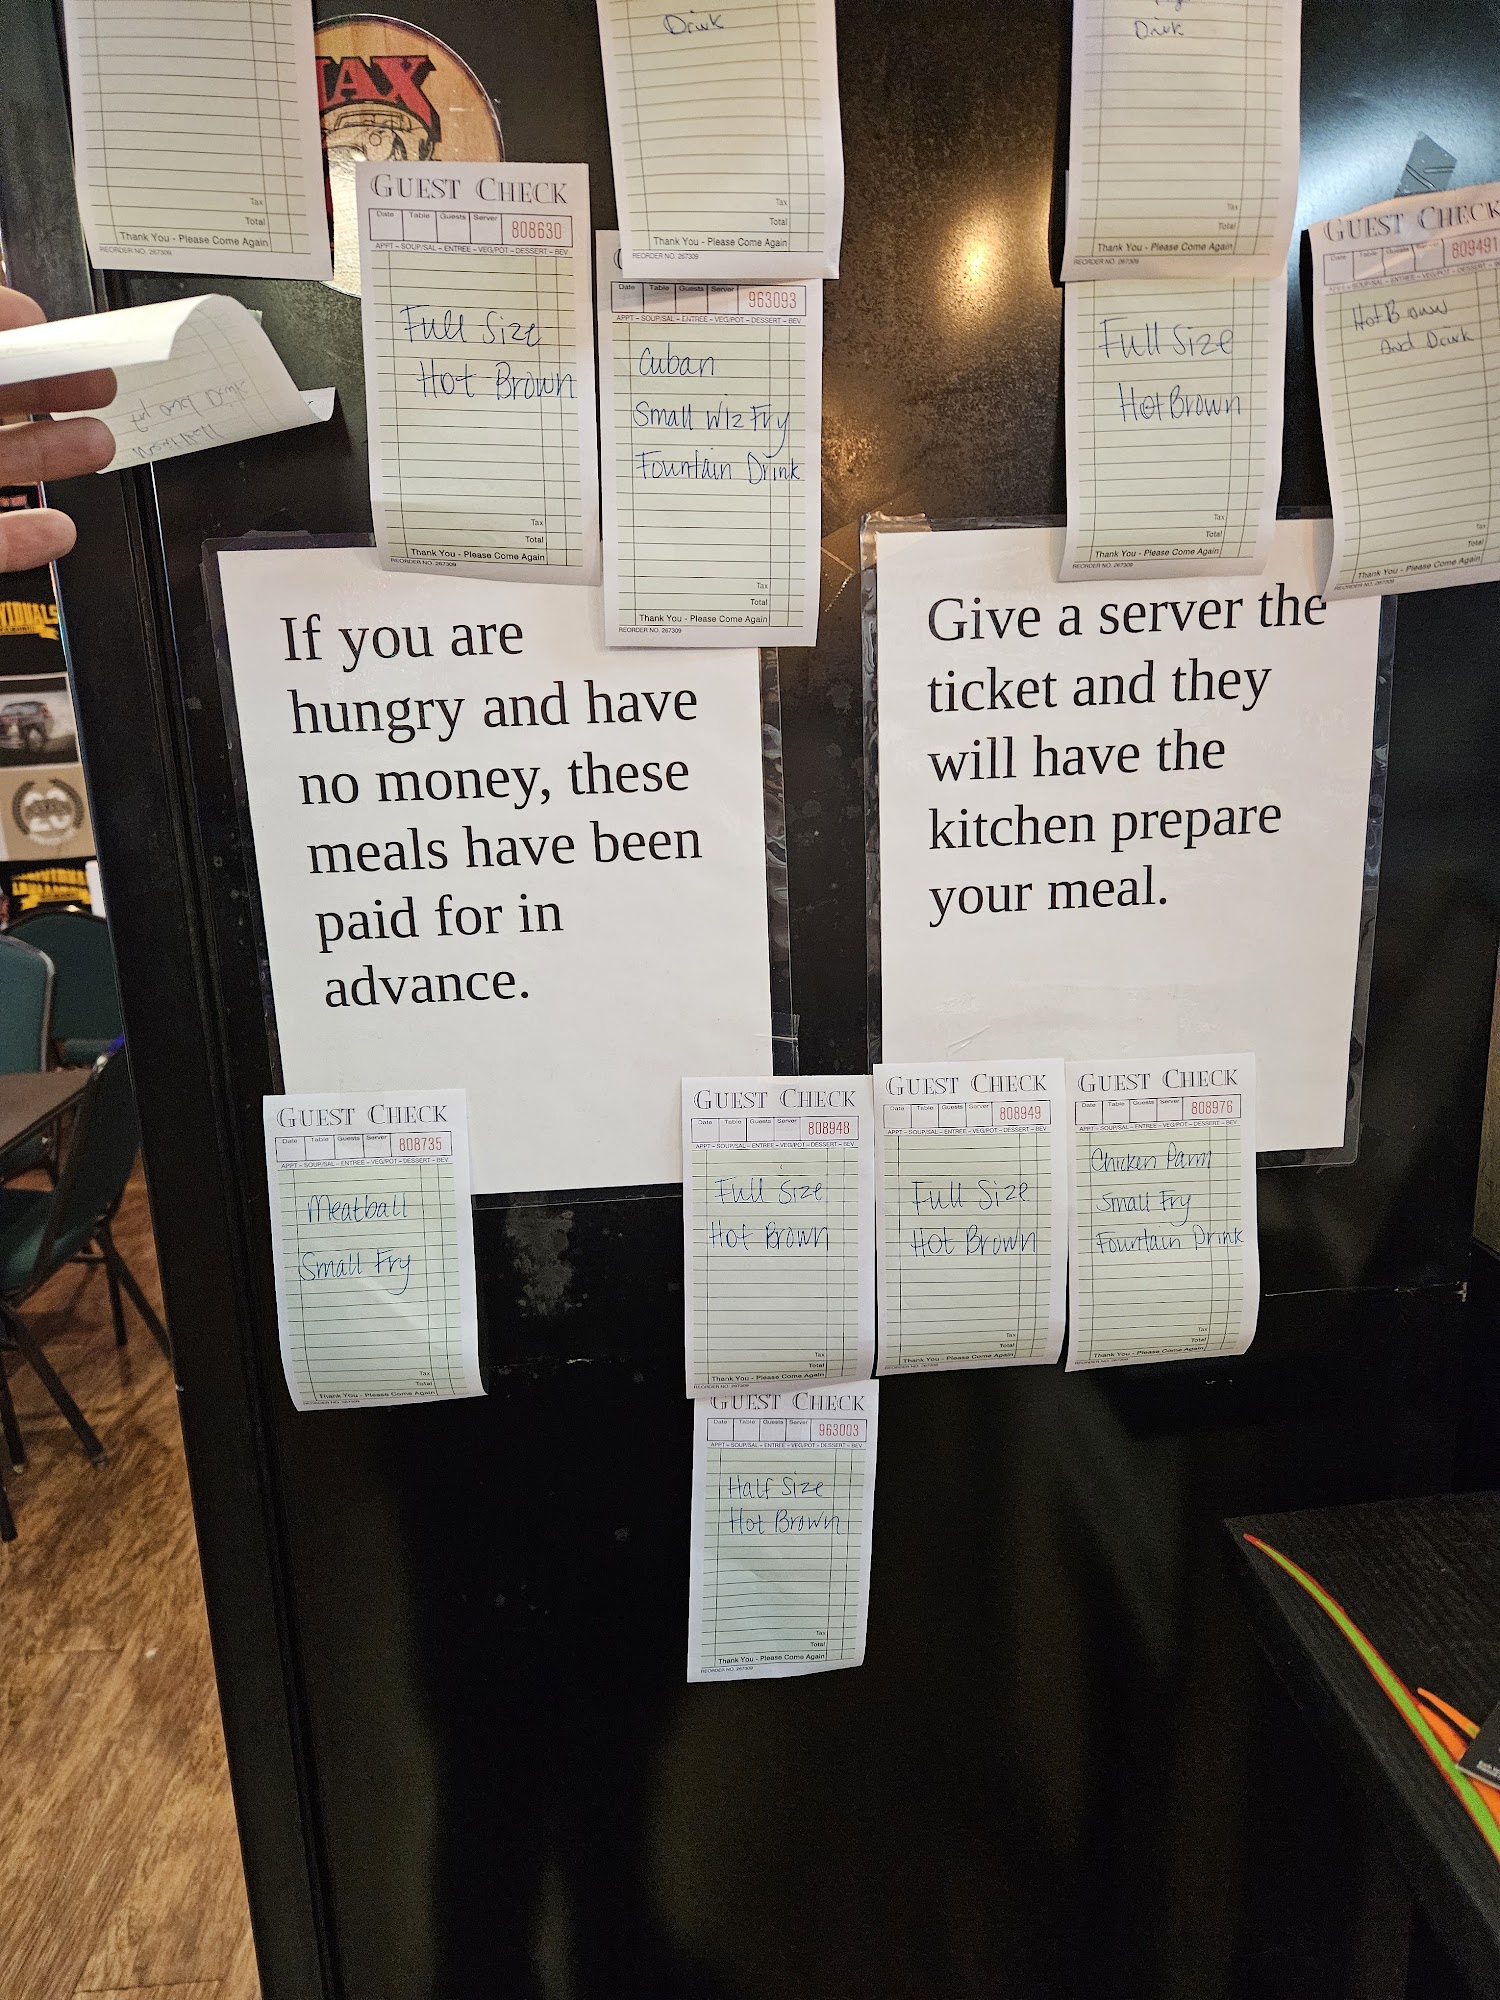 Tax
Total
Thank You - Please Come Again
REORDER NO. 267309
Drink
Tax
Total
Thank You - Please Come Again
REORDER NO. 267309
Drink
Tax
Total
Thank You - Please Come Again
REORDER NO. 267309
GUEST CHECK
Date Table Guests Server 808630
APPT – SOUP/SAL – ENTREE – VEG/POT – DESSERT – BEV
Full Size
Hot Brown
Tax
Total
Thank You - Please Come Again
REORDER NO. 267309
Date Table Guests Server 963093
APPT – SOUP/SAL – ENTREE – VEG/POT – DESSERT – BEV
Cuban
Small Wiz Fry
Fountain Drink
Tax
Total
Thank You - Please Come Again
REORDER NO. 267309
Full Size
Hot Brown
Tax
Total
Thank You - Please Come Again
REORDER NO. 267309
GUEST CHECK
809491
Hot Brown
And Drink
Tax
Total
Thank You - Please Come Again
REORDER NO. 267309
If you are
hungry and have
no money, these
meals have been
paid for in
advance.
Give a server the
ticket and they
will have the
kitchen prepare
your meal.
GUEST CHECK
Date Table Guests Server 808735
APPT – SOUP/SAL – ENTREE – VEG/POT – DESSERT – BEV
Meatball
Small Fry
Tax
Total
Thank You - Please Come Again
REORDER NO. 267309
GUEST CHECK
Date Table Guests Server 808948
APPT – SOUP/SAL – ENTREE – VEG/POT – DESSERT – BEV
Full Size
Hot Brown
Tax
Total
Thank You - Please Come Again
REORDER NO. 267309
GUEST CHECK
Date Table Guests Server 808949
APPT – SOUP/SAL – ENTREE – VEG/POT – DESSERT – BEV
Full Size
Hot Brown
Tax
Total
Thank You - Please Come Again
REORDER NO. 267309
GUEST CHECK
Date Table Guests Server 808976
APPT – SOUP/SAL – ENTREE – VEG/POT – DESSERT – BEV
Chicken Parm
Small Fry
Fountain Drink
Tax
Total
Thank You - Please Come Again
REORDER NO. 267309
GUEST CHECK
Date Table Guests Server 963003
APPT – SOUP/SAL – ENTREE – VEG/POT – DESSERT – BEV
Half Size
Hot Brown
Tax
Total
Thank You - Please Come Again
REORDER NO. 267309